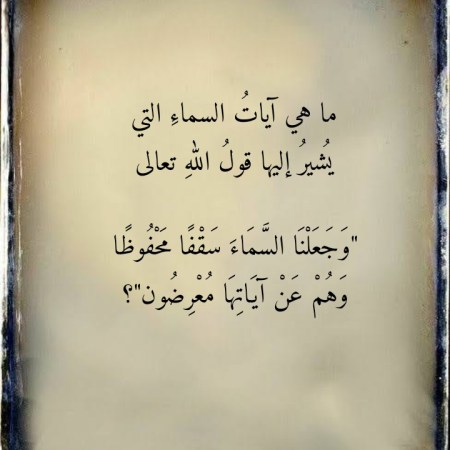 ما هي آياتُ السماءِ التي
يُشيرُ إليها قولُ اللهِ تعالى
"وَجَعَلْنَا السَّمَاءَ سَقْفًا مَحْفُوظًا
وَهُمْ عَنْ آيَاتِهَا مُعْرِضُون"؟